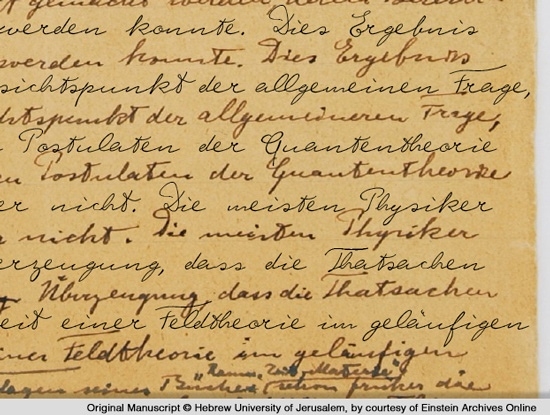 werden konnte. Dies Ergebnis
werden konnte. Dies Ergebnis
sichtspunkt der allgemeinen Frage,
htspunkt der allgemeineren Frage,
Postulaten der Quantentheorie
en Postulaten der Quantentheorie
er nicht. Die meisten Physiker
r nicht. Die meisten Physiker
erzeugung, dass die Thatsachen
Überzeugung, dass die Thatsachen
eit einer Feldtheorie im geläufigen
einer Feldtheorie im geläufigen
"Raum, Zeit, Materie"
seines Buches schon früher die
Original Manuscript © Hebrew University of Jerusalem, by courtesy of Einstein Archives Online